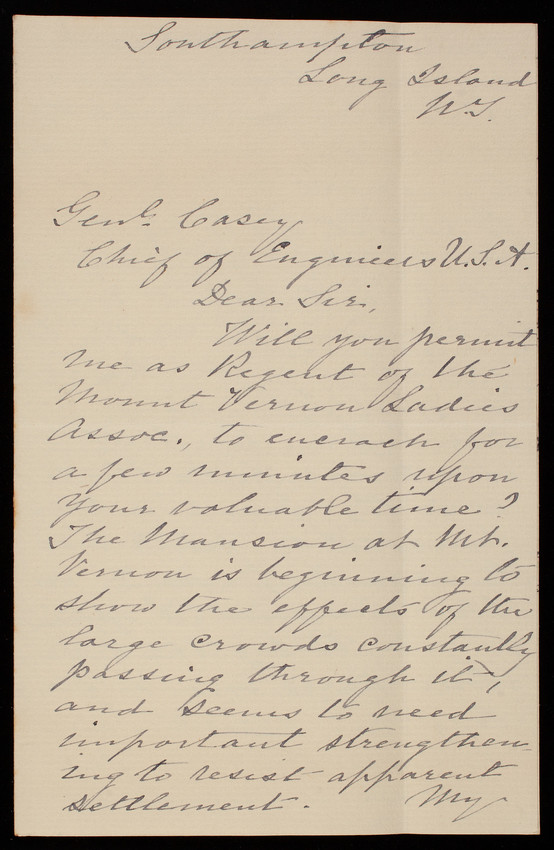 Southampton
Long Island
N.Y.
Genl. Casey
Chief of Engineers U.S.A.
Dear Sir,
Will you permit
me as Regent of the
Mount Vernon Ladies
Assoc., to encroach for
a few minutes upon
your valuable time?
The Mansion at Mt.
Vernon is beginning to
show the effects of the
large crowds constantly
passing through it,
and seems to need
important strengthen-
ing to resist apparent
settlement. My